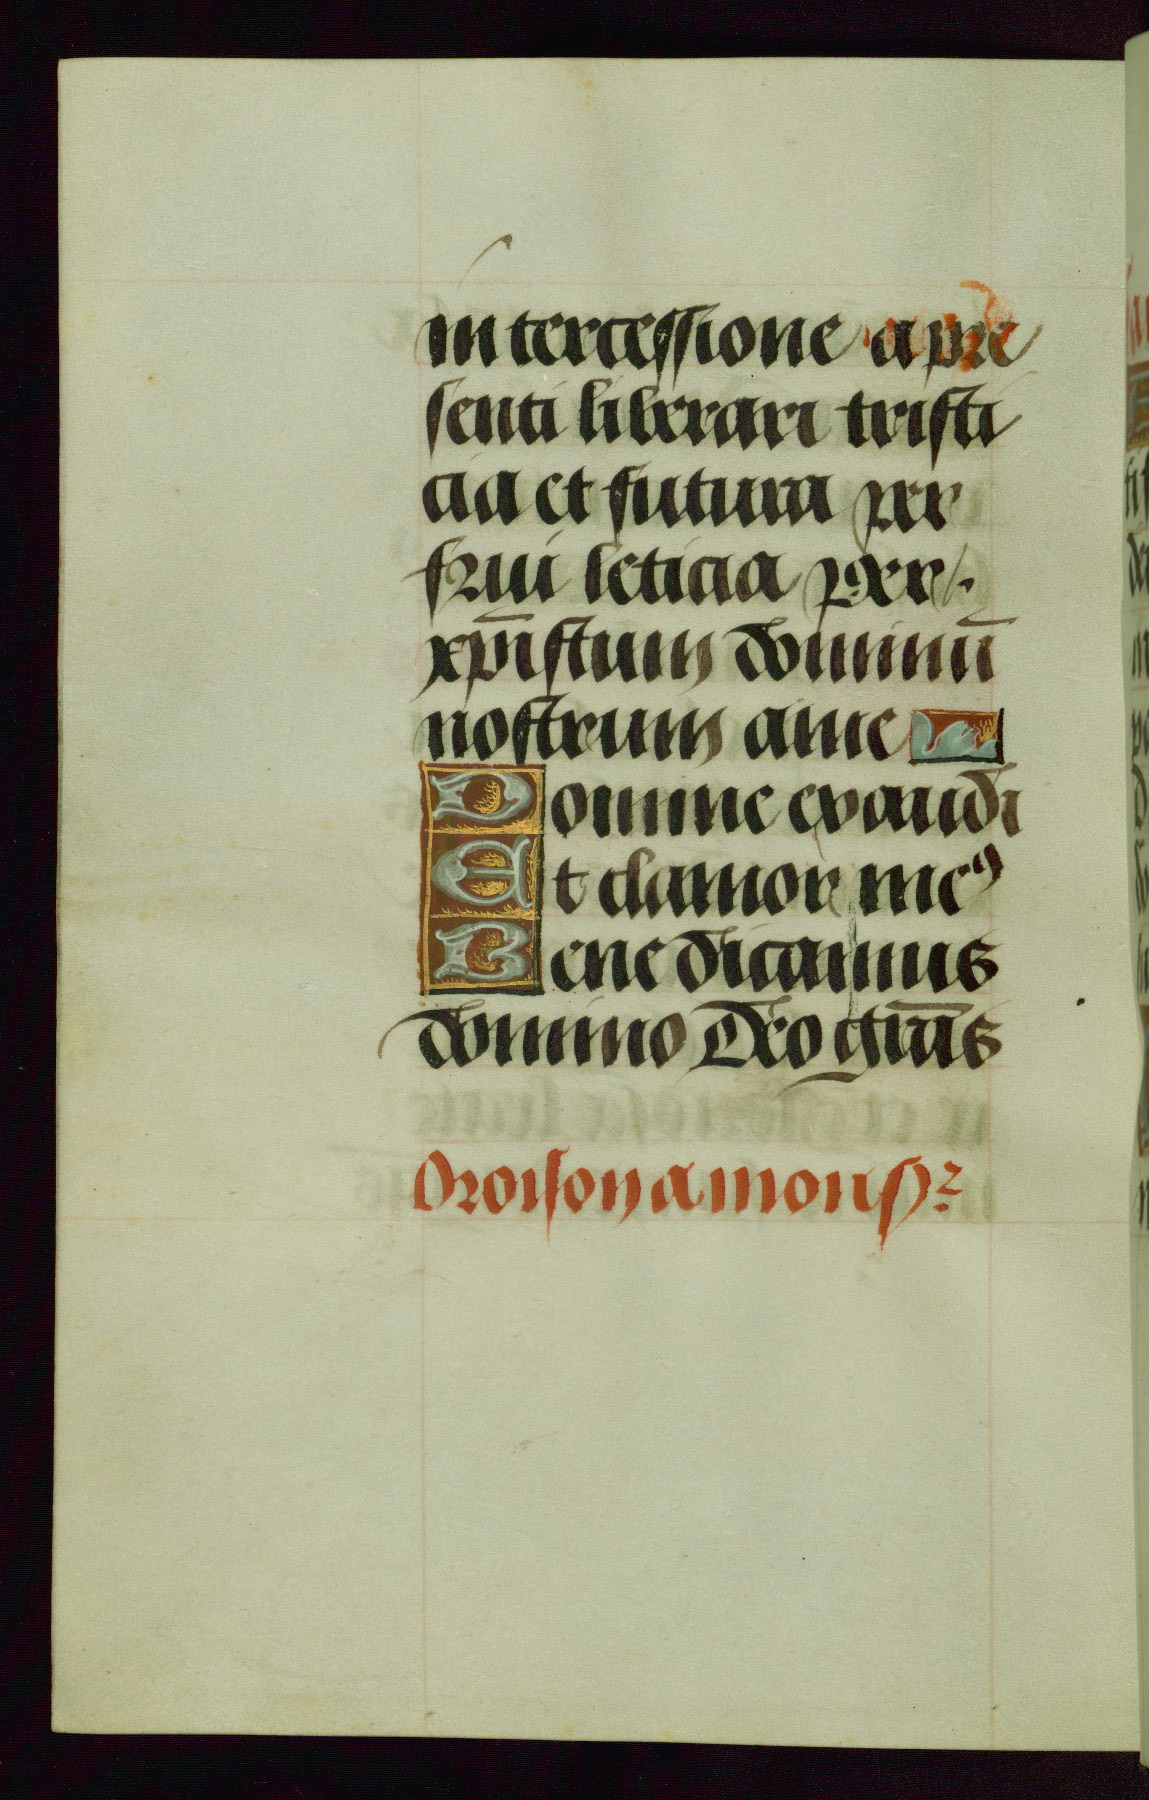 in tercessione a pre
senti liberari tristi
cia et futura per
frui leticia per
xp̄istum dominū
nostrum ame
Domine exaudi
Et clamor meꝯ
Bene dicamus
domino Deo gr̄as
Oroison a mons̕ꝛ